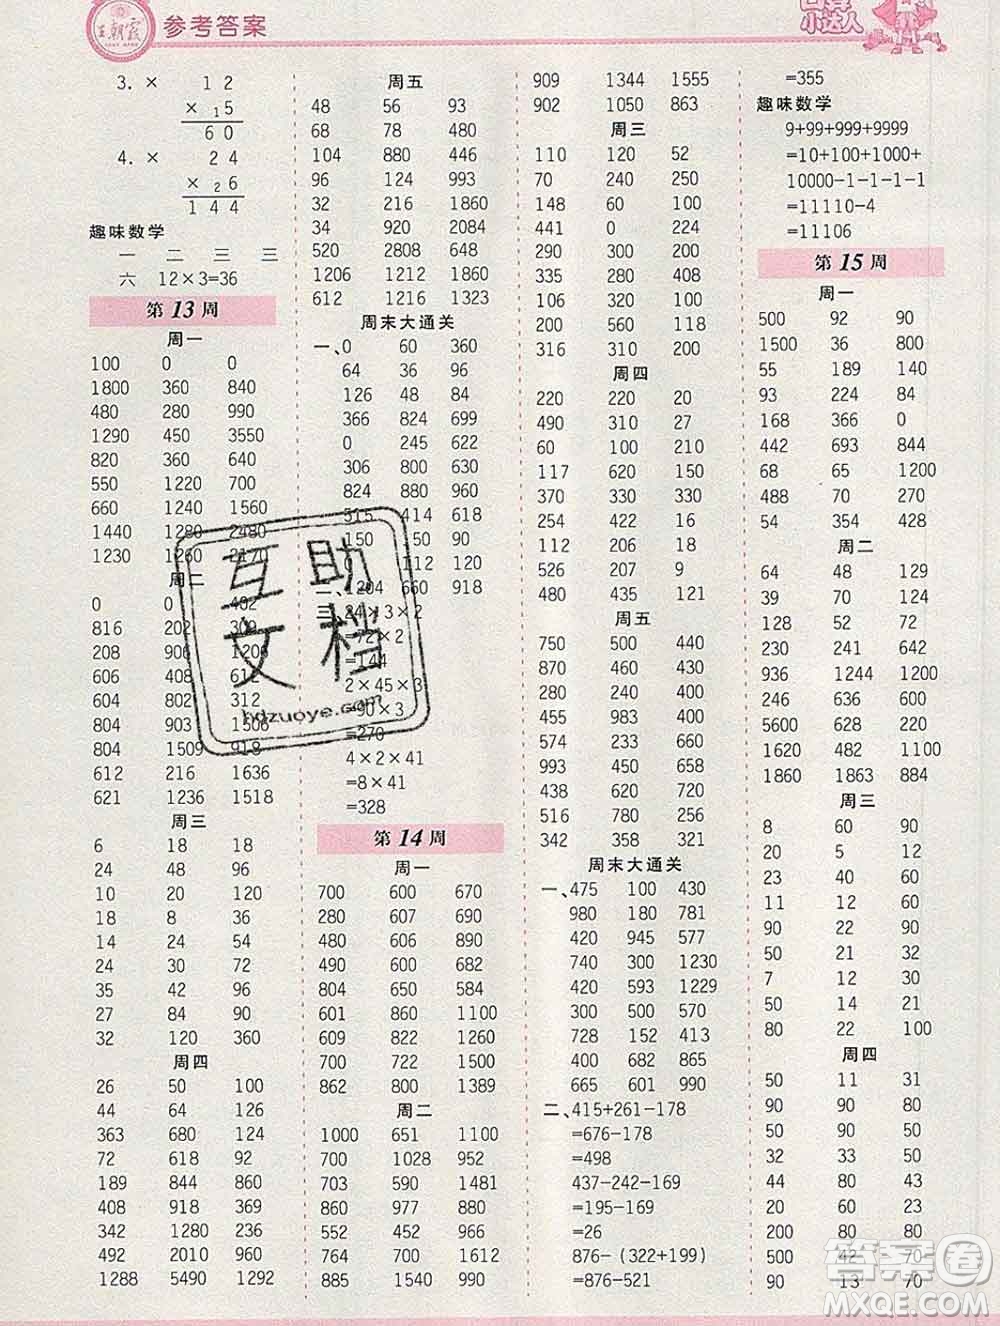 王朝霞 参考答案
口算
小达人
3. × 1 2
× 1 5
6 0
4. × 2 4
× 2 6
1 4 4
趣味数学
一 二 三 三
六 12×3=36
第13周
周一
100 0 0
1800 360 840
480 280 990
1290 450 3550
820 360 640
550 1220 700
660 1240 1560
1440 1280 2480
1230 1060 2170
周二
0 0 402
816 202 309
208 906 1206
604 408 612
804 602 312
804 903 1508
804 1509 918
612 216 1530
621 1236 1518
周三
6 18 18
24 48 96
10 20 120
18 8 36
14 24 54
24 30 72
35 42 96
27 84 90
32 120 360
周四
26 50 100
44 64 126
363 680 124
72 168 240
189 844 860
408 918 369
342 1280 236
492 2010 960
1288 5490 1292
周五
48 56 93
68 78 480
104 880 446
96 124 993
32 216 1860
34 920 2084
520 2808 648
1206 1212 1860
612 1016 1240
周末大通关
一、0 60 360
64 36 96
126 48 84
366 824 699
0 245 622
306 800 630
824 880 960
515 414 618
150 50 90
0 112 120
二、1204 660 918
三、24×3×2
=72×2
=144
2×45×3
=90×3
=270
4×2×41
=8×41
=328
第14周
周一
700 600 670
280 607 690
480 606 460
300 640 480
804 650 500
601 860 1100
609 822 1260
700 722 1500
862 800 1389
周二
1000 651 1100
700 1028 952
703 590 1481
860 977 1200
552 452 946
764 700 1612
885 1540 990
909 1344 1555
902 1050 863
周三
110 120 52
70 240 250
148 60 100
441 0 224
335 280 408
106 320 100
200 560 300
316 310 200
周四
220 220 20
490 670 300
60 100 210
117 620 150
370 330 330
254 422 16
112 206 18
526 207 9
480 435 121
周五
750 500 440
870 460 450
550 500 750
910 600 722
533 600 450
993 660 650
438 620 720
516 780 560
342 338 720
周末大通关
一、475 100 430
980 180 781
420 945 577
740 300 1230
420 593 1229
1000 500 357
728 152 413
400 682 865
665 651 990
二、415+261-178
=676-178
=498
437-242-169
=195-169
=26
876-(322+199)
=876-521
=355
趣味数学
9+99+999+9999
=10+100+1000+
10000-1-1-1-1
=11110-4
=11106
第15周
周一
500 92 90
1500 36 800
55 189 140
93 224 84
168 366 0
442 693 844
68 65 1200
488 70 270
54 354 428
周二
64 48 129
39 70 124
128 52 72
230 241 642
936 1244 1200
624 640 2082
5600 628 102
1620 482 1100
1860 1863 884
周三
8 60 90
20 5 12
50 40 80
11 12 60
90 22 90
50 50 50
7 12 30
50 14 21
80 22 100
周四
50 11 31
90 90 80
50 90 50
32 33 50
44 80 21
20 60 23
200 80 80
500 42 70
90 13 70
互助
文档
hdzuoye.com
答案圈
MXQE.COM